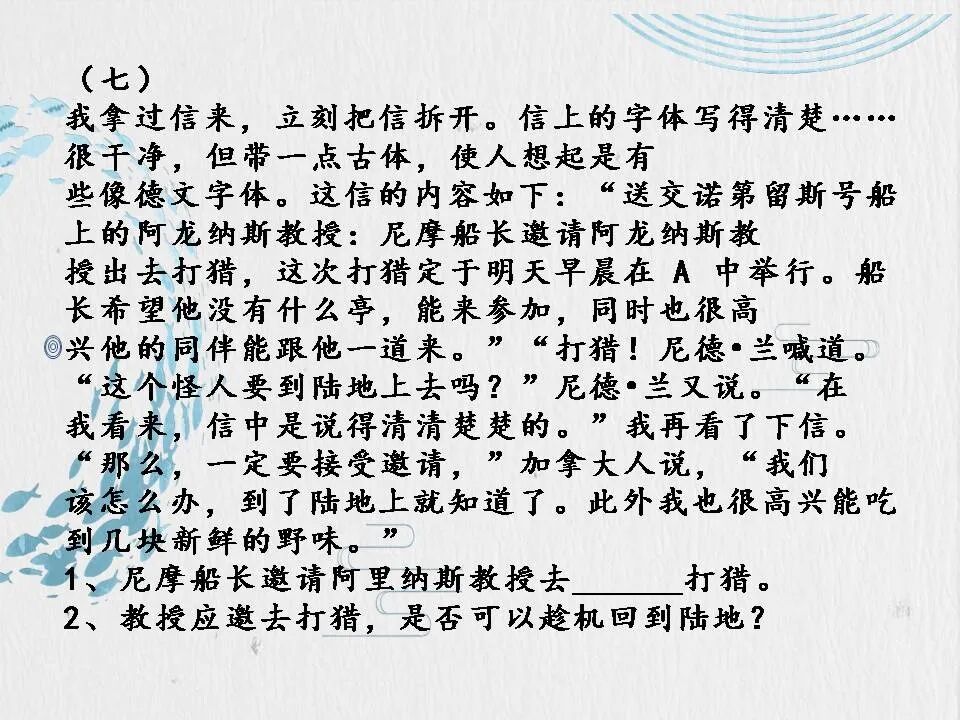 （七）
我拿过信来，立刻把信拆开。信上的字体写得清楚……
很干净，但带一点古体，使人想起是有
些像德文字体。这信的内容如下：“送交诺第留斯号船
上的阿龙纳斯教授：尼摩船长邀请阿龙纳斯教
授出去打猎，这次打猎定于明天早晨在 A 中举行。船
长希望他没有什么亭，能来参加，同时也很高
兴他的同伴能跟他一道来。”“打猎！尼德•兰喊道。
“这个怪人要到陆地上去吗？”尼德•兰又说。“在
我看来，信中是说得清清楚楚的。”我再看了下信。
“那么，一定要接受邀请，”加拿大人说，“我们
该怎么办，到了陆地上就知道了。此外我也很高兴能吃
到几块新鲜的野味。”
1、尼摩船长邀请阿里纳斯教授去______打猎。
2、教授应邀去打猎，是否可以趁机回到陆地？